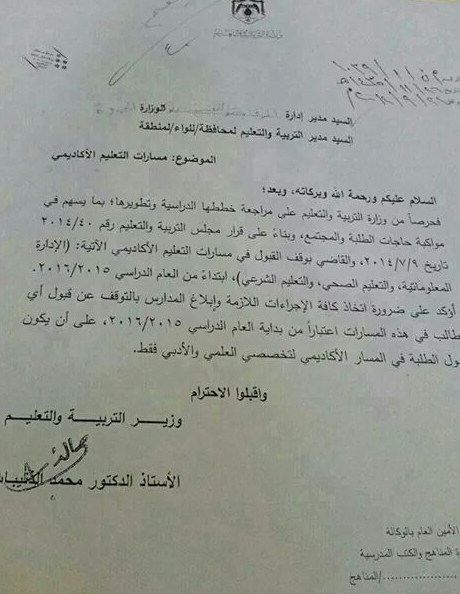 السيد مدير إدارة
الوزارة
السيد مدير التربية والتعليم لمحافظة/للواء/لمنطقة
الموضوع: مسارات التعليم الأكاديمي
السلام عليكم ورحمة الله وبركاته، وبعد؛
فحرصاً من وزارة التربية والتعليم على مراجعة خططها الدراسية وتطويرها؛ بما يسهم في
مواكبة حاجات الطلبة والمجتمع، وبناءً على قرار مجلس التربية والتعليم رقم ٢٠١٤/٤٠
تاريخ ٢٠١٤/٧/٩، والقاضي بوقف القبول في مسارات التعليم الأكاديمي الآتية: (الإدارة
المعلوماتية، والتعليم الصحي، والتعليم الشرعي)، ابتداءً من العام الدراسي ٢٠١٦/٢٠١٥.
أؤكد على ضرورة اتخاذ كافة الإجراءات اللازمة وإبلاغ المدارس بالتوقف عن قبول أي
طالب في هذه المسارات اعتباراً من بداية العام الدراسي ٢٠١٦/٢٠١٥، على أن يكون
ول الطلبة في المسار الأكاديمي لتخصصي العلمي والأدبي فقط.
واقبلوا الاحترام
وزير التربية والتعليم
الأستاذ الدكتور محمد
الأمين العام بالوكالة
ة المناهج والكتب المدرسية
/المناهج